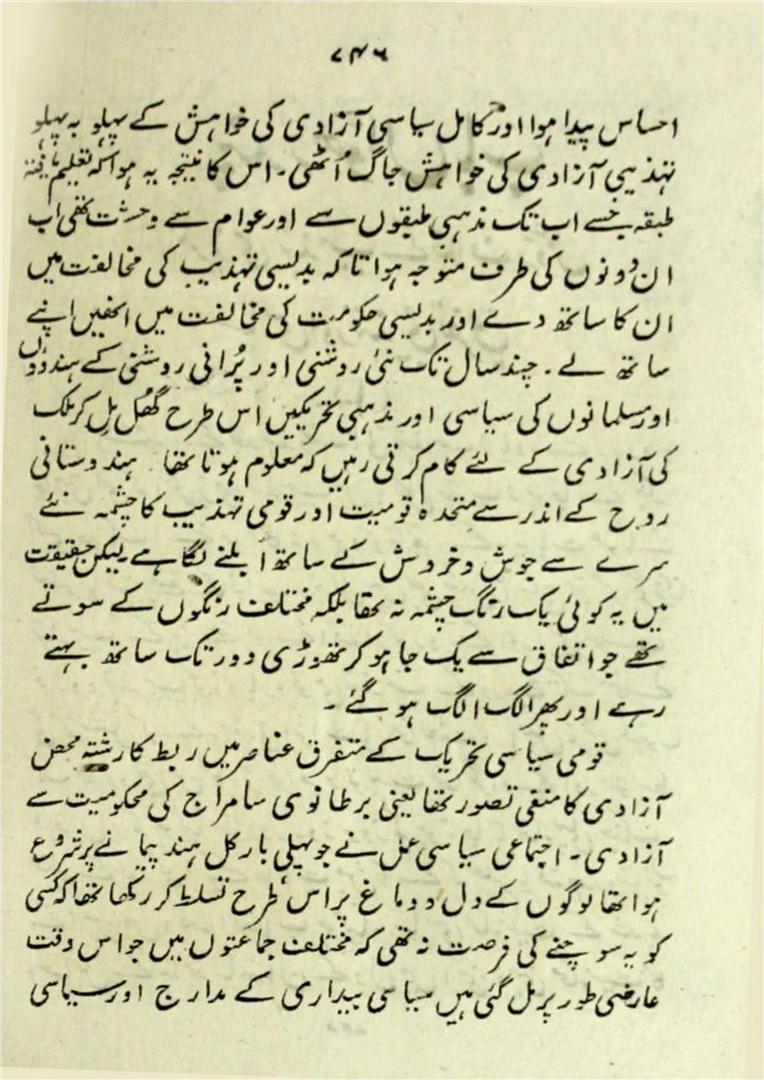 ۷۴۶
احساس پیدا ہوا اور کامل سیاسی آزادی کی خواہش کے پہلو بہ پہلو
تہذیبی آزادی کی خواہش جاگ اُٹھی۔ اس کا نتیجہ یہ ہوا کہ تعلیم یافتہ
طبقہ جسے اب تک مذہبی طبقوں سے اور عوام سے وحشت تھی اب
ان دونوں کی طرف متوجہ ہوا تاکہ بدلیسی تہذیب کی مخالفت میں
ان کا ساتھ دے اور بدلیسی حکومت کی مخالفت میں انھیں اپنے
ساتھ لے۔ چند سال تک نئی روشنی اور پُرانی روشنی کے ہندوؤں
اور مسلمانوں کی سیاسی اور مذہبی تحریکیں اس طرح گھُل مِل کر ملک
کی آزادی کے لئے کام کرتی رہیں کہ معلوم ہوتا تھا ہندوستانی
روح کے اندر سے متحدہ قومیت اور قومی تہذیب کا چشمہ نئے
سرے سے جوش و خروش کے ساتھ اُبلنے لگا ہے لیکن حقیقت
میں یہ کوئی یک رنگ چشمہ نہ تھا بلکہ مختلف رنگوں کے سوتے
تھے جو اتفاق سے یک جا ہو کر تھوڑی دور تک ساتھ بہتے
رہے اور پھر الگ الگ ہو گئے ۔
قومی سیاسی تحریک کے متفرق عناصر میں ربط کا رشتہ محض
آزادی کا منفی تصور تھا یعنی برطانوی سامراج کی محکومیت سے
آزادی۔ اجتماعی سیاسی عمل نے جو پہلی بار کل ہند پیمانے پر شروع
ہوا تھا لوگوں کے دل و دماغ پر اس طرح تسلط کر رکھا تھا کہ کسی
کو یہ سوچنے کی فرصت نہ تھی کہ مختلف جماعتوں میں جو اس وقت
عارضی طور پر مل گئی ہیں سیاسی بیداری کے مدارج اور سیاسی